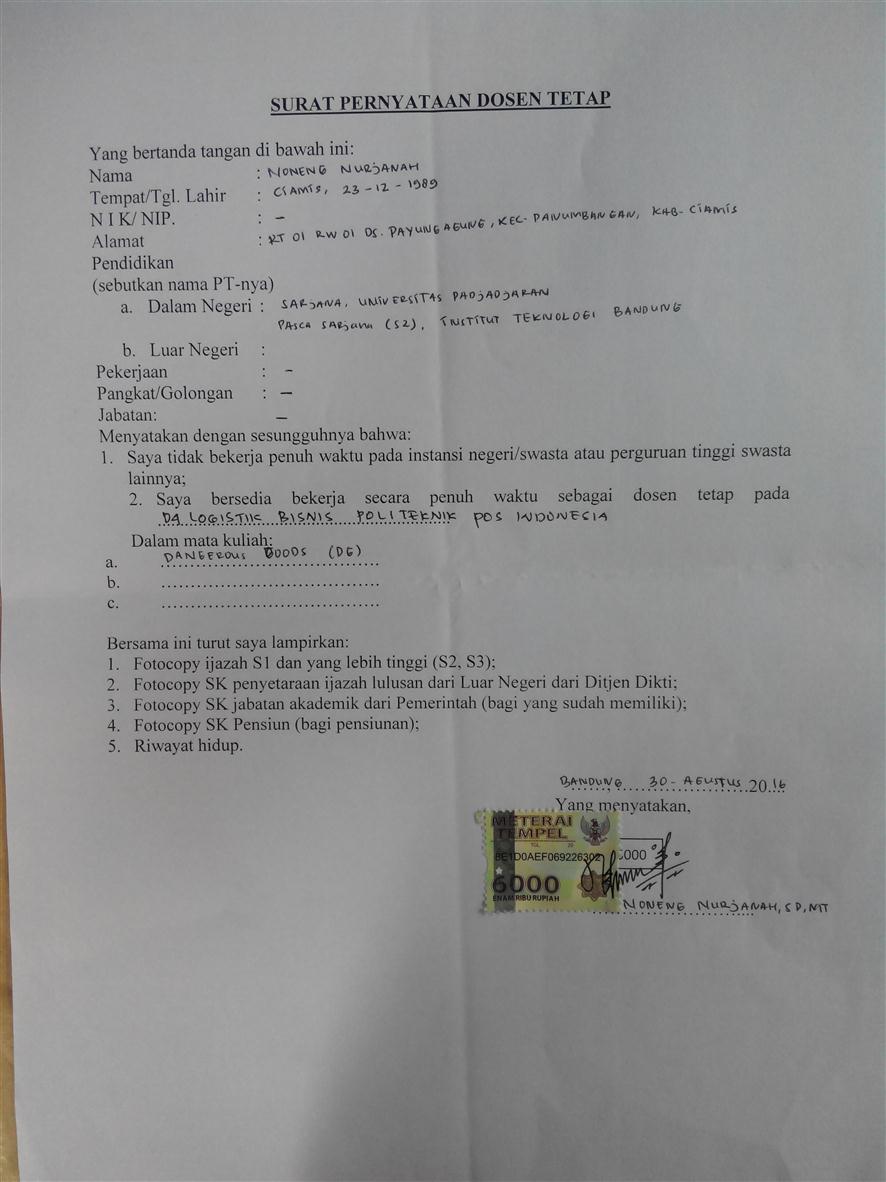 SURAT PERNYATAAN DOSEN TETAP
Yang bertanda tangan di bawah ini:
Nama : NONENG NURJANAH
Tempat/Tgl. Lahir : CIAMIS, 23-12-1989
N I K/ NIP. : -
Alamat : RT 01 RW 01 DS. PAYUNGAGUNG, KEC- PANUMBANGAN, KAB- CIAMIS
Pendidikan
(sebutkan nama PT-nya)
a. Dalam Negeri : SARJANA, UNIVERSITAS PADJADJARAN
PASCA SARJANA (S2), INSTITUT TEKNOLOGI BANDUNG
b. Luar Negeri :
Pekerjaan : -
Pangkat/Golongan : -
Jabatan: -
Menyatakan dengan sesungguhnya bahwa:
1. Saya tidak bekerja penuh waktu pada instansi negeri/swasta atau perguruan tinggi swasta
lainnya;
2. Saya bersedia bekerja secara penuh waktu sebagai dosen tetap pada
D4 LOGISTIK BISNIS POLITEKNIK POS INDONESIA
Dalam mata kuliah:
a. DANGEROUS GOODS (DG)
b. ........................................
c. ........................................
Bersama ini turut saya lampirkan:
1. Fotocopy ijazah S1 dan yang lebih tinggi (S2, S3);
2. Fotocopy SK penyetaraan ijazah lulusan dari Luar Negeri dari Ditjen Dikti;
3. Fotocopy SK jabatan akademik dari Pemerintah (bagi yang sudah memiliki);
4. Fotocopy SK Pensiun (bagi pensiunan);
5. Riwayat hidup.
BANDUNG 30-AGUSTUS 2016
Yang menyatakan,
METERAI
TEMPEL
TGL 20
8E1D0AEF069226302
6000
6000
ENAM RIBU RUPIAH
NONENG NURJANAH, SD, MT